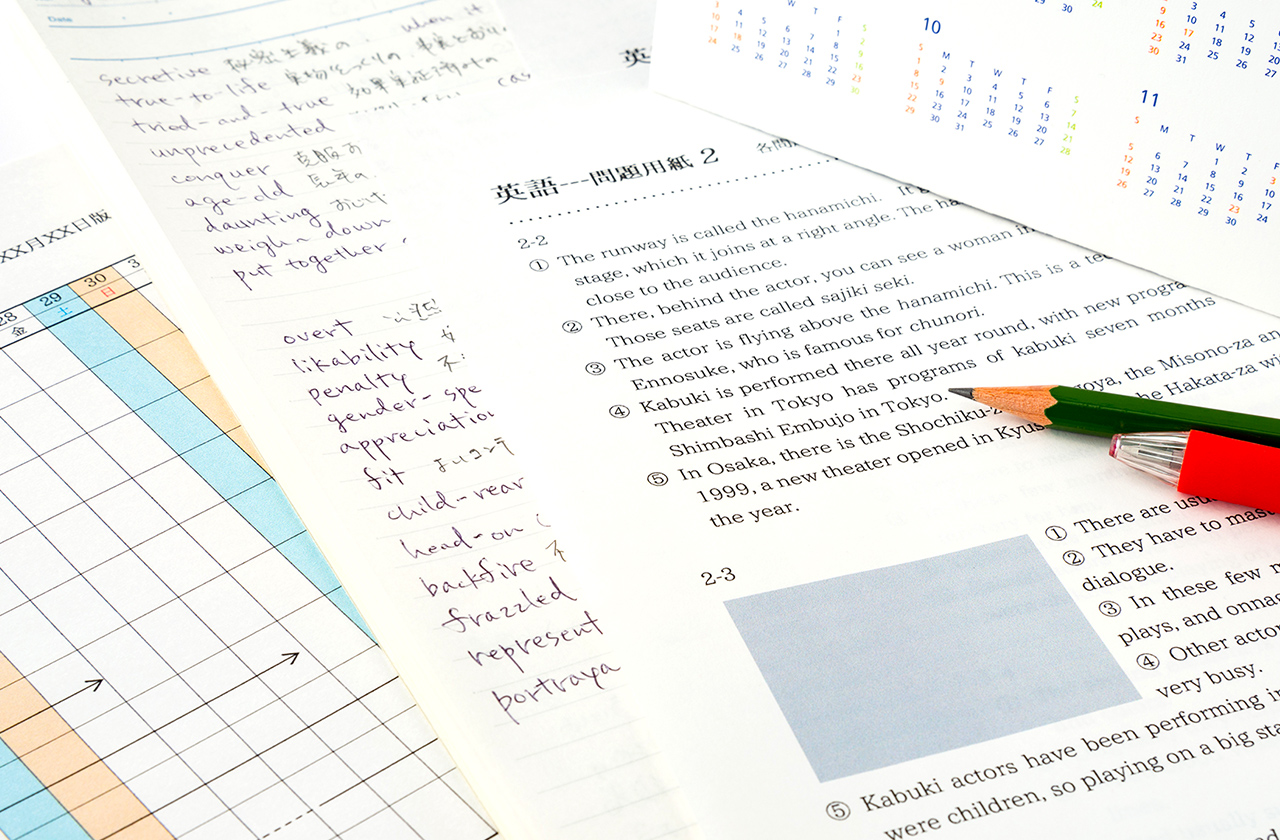 Date
secretive 秘密主義の
when it
true-to-life 実物そっくりの、事実に
tried-and-true
cas
unprecedented
conquer 克服す
age-old 長年の
daunting
weigh~down
put together
overt
likability
penalty
gender-spe
appreciation
fit
child-rear
head-on
backfire
frazzled
represent
portraya
XX月XX日版
28 29 30 3
金 土 日
英語---問題用紙 2 各問
2-2
① The runway is called the hanamichi. It
stage, which it joins at a right angle. The ha
close to the audience.
② There, behind the actor, you can see a woman in
Those seats are called sajiki seki.
③ The actor is flying above the hanamichi. This is a tec
Ennosuke, who is famous for chunori.
④ Kabuki is performed there all year round, with new progra
Theater in Tokyo has programs of kabuki seven months
Shimbashi Embujo in Tokyo.
⑤ In Osaka, there is the Shochiku-z goya, the Misono-za an
1999, a new theater opened in Kyus he Hakata-za wi
the year.
2-3
① There are usu
② They have to mast
dialogue.
③ In these few m
plays, and onnag
④ Other actor
very busy.
⑤ Kabuki actors have been performing in
were children, so playing on a big sta
W T F S
3 4 5 6 7 8 9
10 11 12 13 14 15 16
17 18 19 20 21 22 23
24 25 26 27 28 29 30
10
S M T W T F S
1 2 3 4 5 6 7
8 9 10 11 12 13 14
15 16 17 18 19 20 21
22 23 24 25 26 27 28
29 30 31
29 30 24
9 10 11 12
16 17 18 19
23 24 25 26 27
30 31
11
S M T W T
1 2 3
5 6 7 8 9 10
12 13 14 15 16 17
19 20 21 22 23 24
26 27 28 29 30